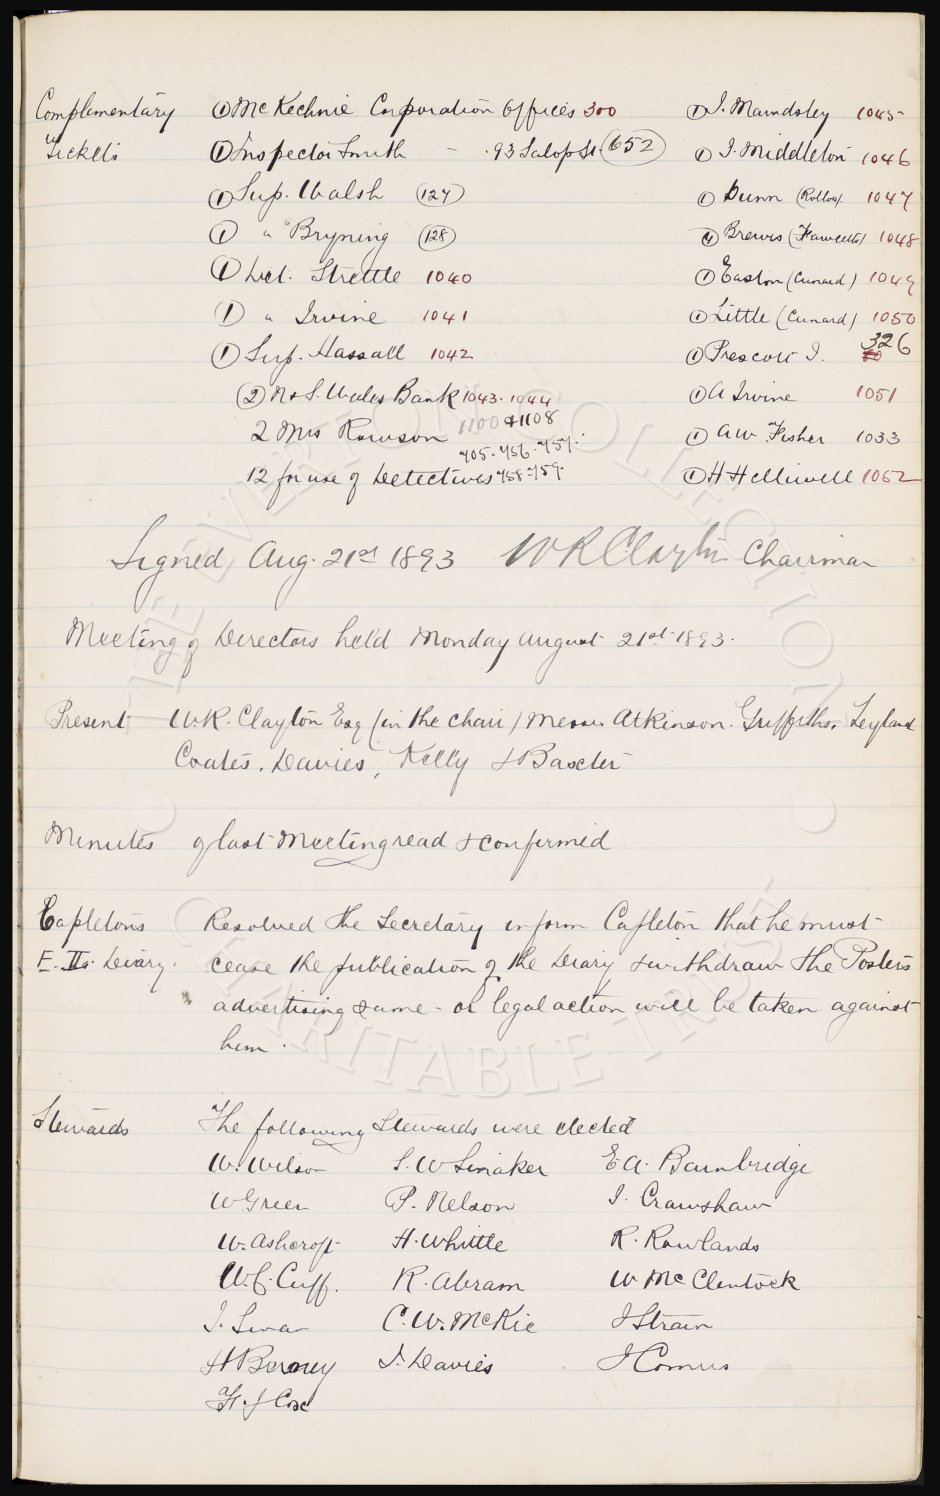 Complementary Tickets
① McKechnie Corporation Offices 300
① Inspector Smith - 93 Salop St. 652
① Sup. Walsh 127
① " Bryning 128
① Det. Strettle 1040
① " Irvine 1041
① Sup. Hassall 1042
② N & S. Wales Bank 1043. 1044
2 Mrs Rawson 1100 & 1108
705. 756. 757.
12 for use of Detectives 758-759.
① J. Mawdsley 1045
① J. Middleton 1046
① Dunn 1047
Brewis (Fawcetts) 1048
① Easton (Cunard) 1049
① Little (Cunard) 1050
① Prescott J. 326
① A Irvine 1051
① AW Fisher 1033
① H Helliwell 1052
Signed Aug. 21st 1893 WR Clayton Chairman
Meeting of Directors held Monday August 21st 1893.
Present W.R. Clayton Esq (in the chair) Messrs Atkinson. Griffiths. Leyland
Coates. Davies, Kelly & Baxter
Minutes of last Meeting read & confirmed
Capletons Resolved the Secretary inform Capleton that he must
E. Ts. Diary. cease the publication of the Diary & withdraw the Posters
advertising same - or legal action will be taken against
him.
Stewards The following Stewards were elected
W. Wilson S. W Liniaker E A. Bainbridge
W Green P. Nelson J. Crawshaw
W. Ashcroft H. Whittle R. Rowlands
W. C. Cuff. R. Abram W McClintock
J. Swan C. W. McKie J Strain
H Berney J. Davies J Comus
H. J Cox
THE EVERTON COLLECTION
CHARITABLE TRUST